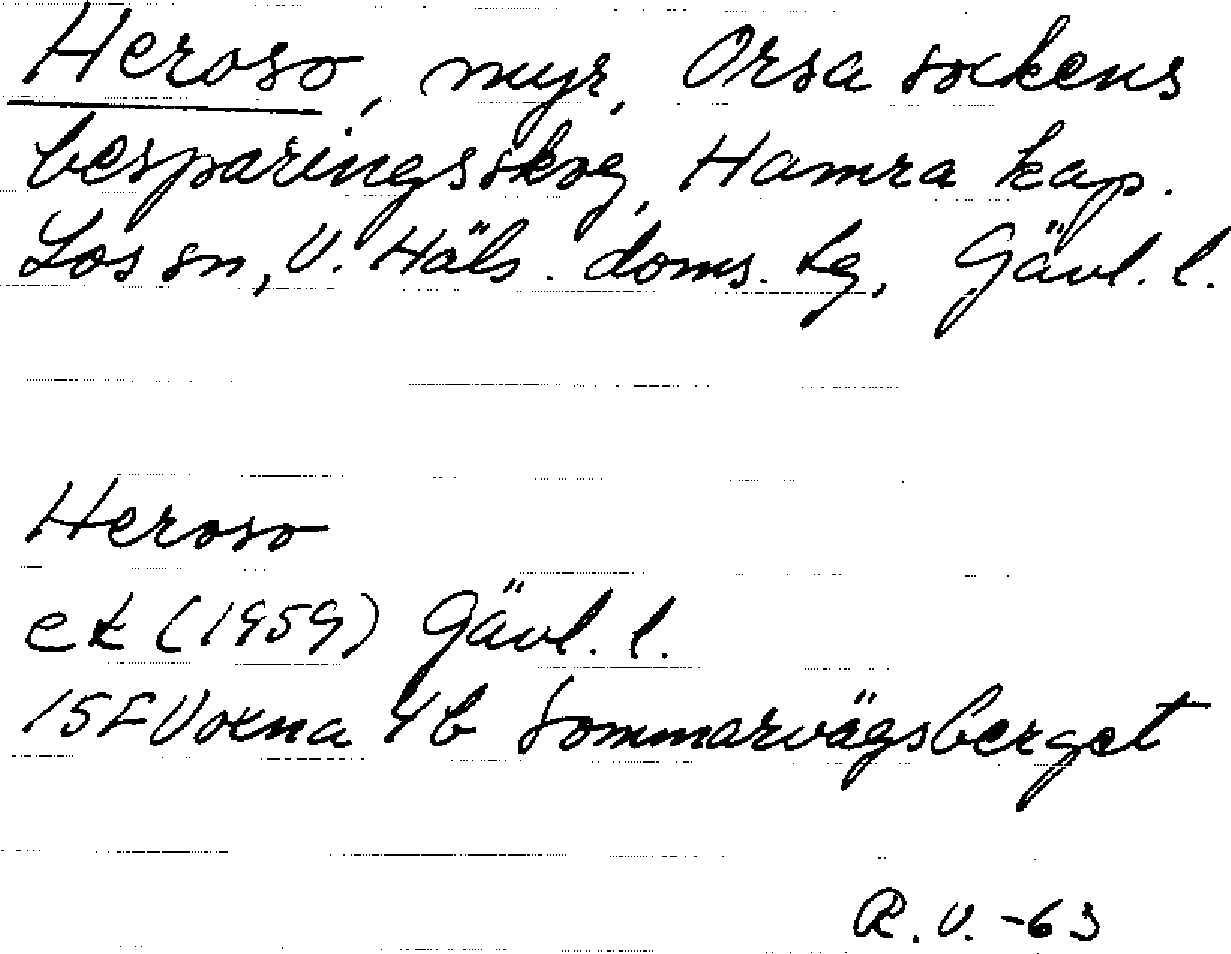 Heroso, myr, Orsa sockens
besparingsskog, Hamra kap.
Los sn, V. Häls. doms. tg, Gävl. l.
Heroso
ek (1959) Gävl. l.
15F Voxna 4b Sommarvägsberget
R.V. -63